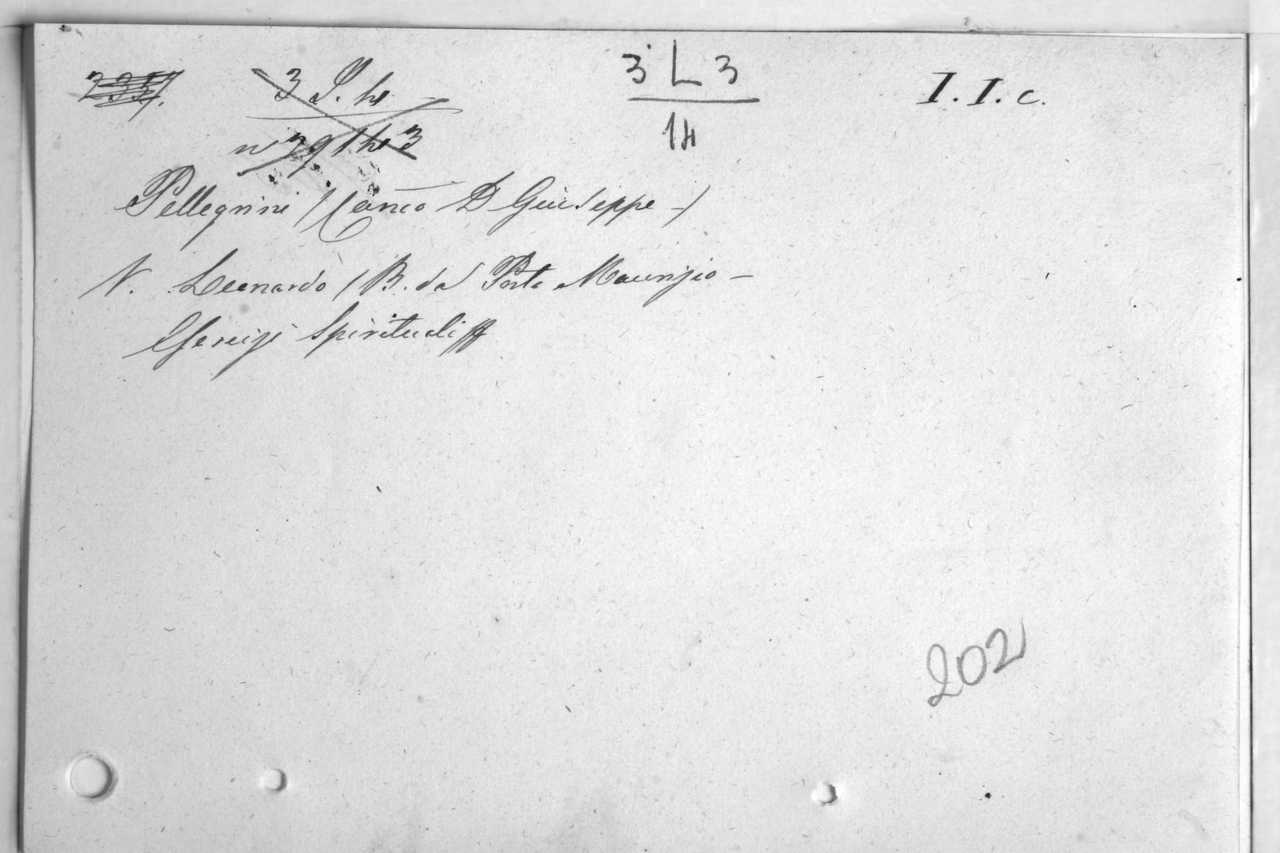 3 L 3
14
I. I. c.
Pellegrini / (Can͞co D Giuseppe -)
V. Leonardo / B. da Porto Maurizio -
Esercizi Spirituali
202